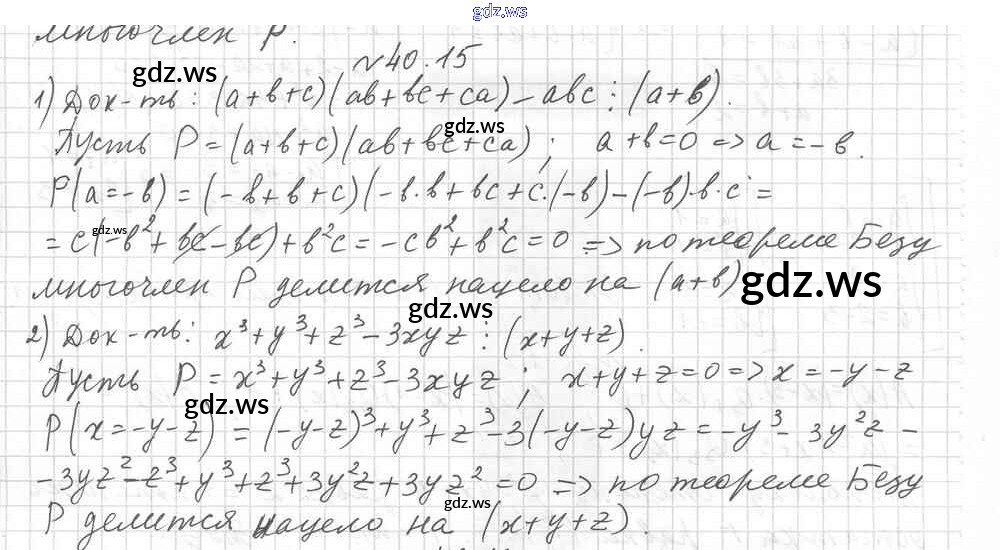 gdz.ws
многочлен P.
№40.15
gdz.ws
1) Док-ть: (a+b+c)(ab+bc+ca)-abc⋮(a+b).
gdz.ws
Пусть P=(a+b+c)(ab+bc+ca); a+b=0=>a=-b.
P(a=-b)=(-b+b+c)(-b·b+bc+c·(-b)-(-b)·b·c=
gdz.ws
=c(-b²+bc-bc)+b²c=-cb²+b²c=0=>по теореме Безу
многочлен P делится нацело на (a+b)
gdz.ws
gdz.ws
2) Док-ть: x³+y³+z³-3xyz⋮(x+y+z).
Пусть P=x³+y³+z³-3xyz; x+y+z=0=>x=-y-z
gdz.ws
P(x=-y-z)=(-y-z)³+y³+z³-3(-y-z)yz=-y³-3y²z-
-3yz²-z³+y³+z³+3y²z+3yz²=0=>по теореме Безу
gdz.ws
P делится нацело на (x+y+z).